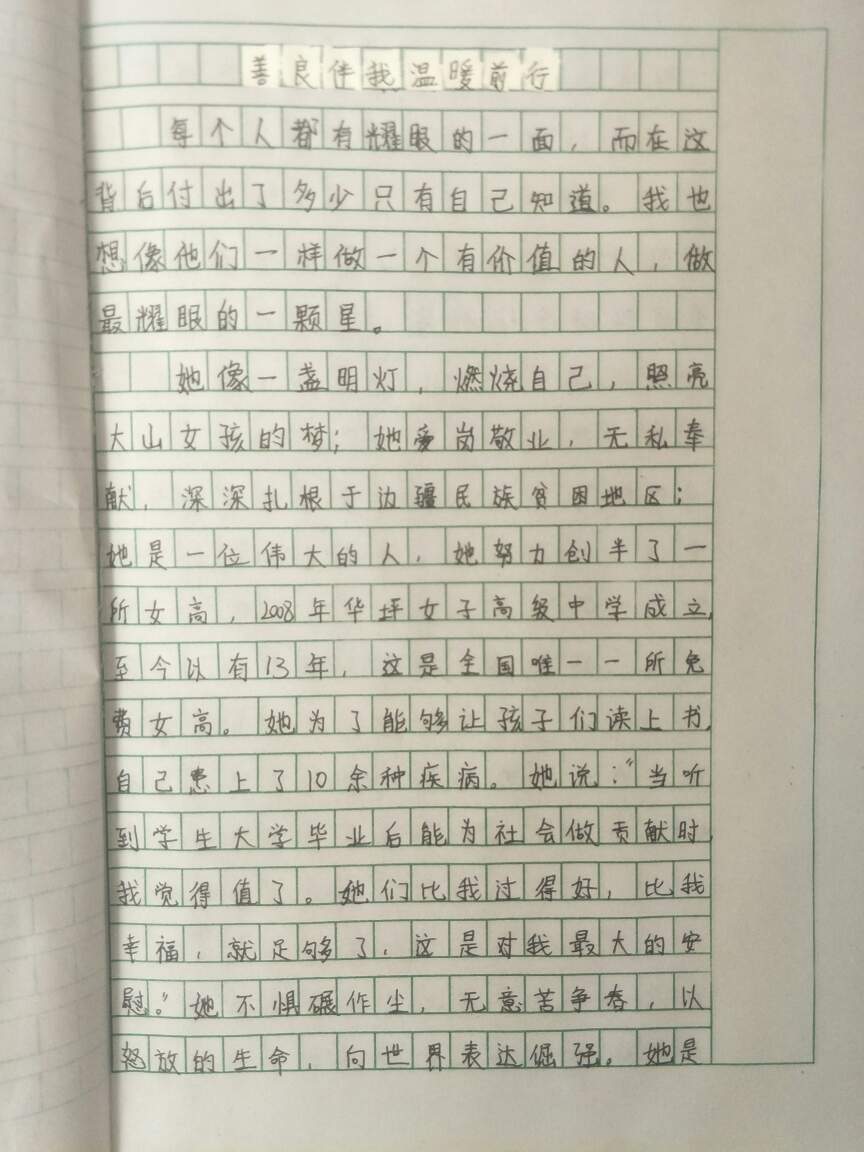 善良伴我温暖前行
每个人都有耀眼的一面，而在这
背后付出了多少只有自己知道。我也
想像他们一样做一个有价值的人，做
最耀眼的一颗星。
她像一盏明灯，燃烧自己，照亮
大山女孩的梦；她爱岗敬业，无私奉
献，深深扎根于边疆民族贫困地区；
她是一位伟大的人，她努力创半了一
所女高，2008年华坪女子高级中学成立，
至今以有13年，这是全国唯一一所免
费女高。她为了能够让孩子们读上书，
自己患上了10余种疾病。她说：“当听
到学生大学毕业后能为社会做贡献时，
我觉得值了。她们比我过得好，比我
幸福，就足够了，这是对我最大的安
慰。”她不惧碾作尘，无意苦争春，以
怒放的生命，向世界表达倔强。她是